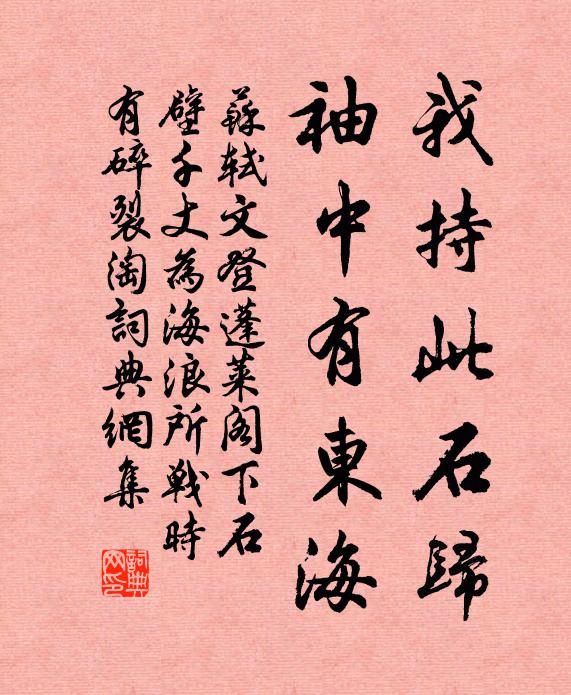 我持此石歸
袖中有東海
蘇軾文登蓬萊閣下石
壁千丈為海浪所戰時
有碎裂淘詞典網集
詞典
网印